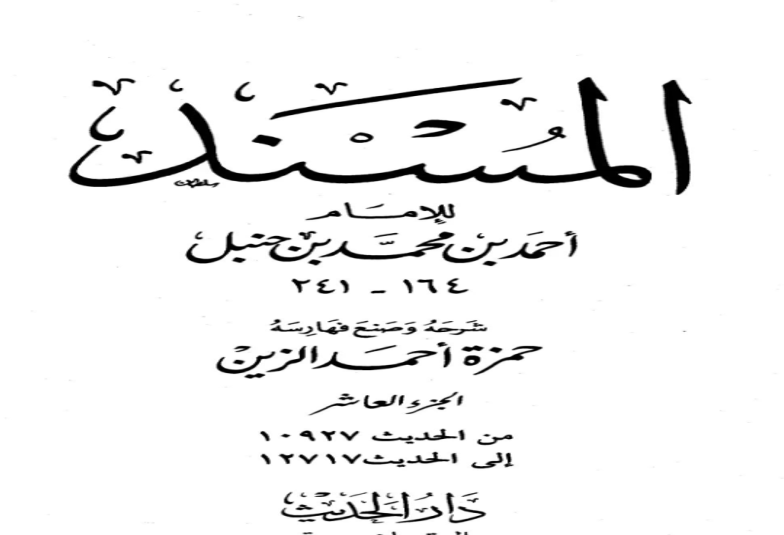 المُسْنَد
للإمام
أحمد بن محمَّد بن حنبل
١٦٤ - ٢٤١
شَرَحَهُ وَصَنَعَ فَهَارِسَهُ
حمزة أحمد الزين
الجزء العاشر
من الحديث ١٠٩٢٧
إلى الحديث ١٢٧١٧
دَارُ الحَدِيث